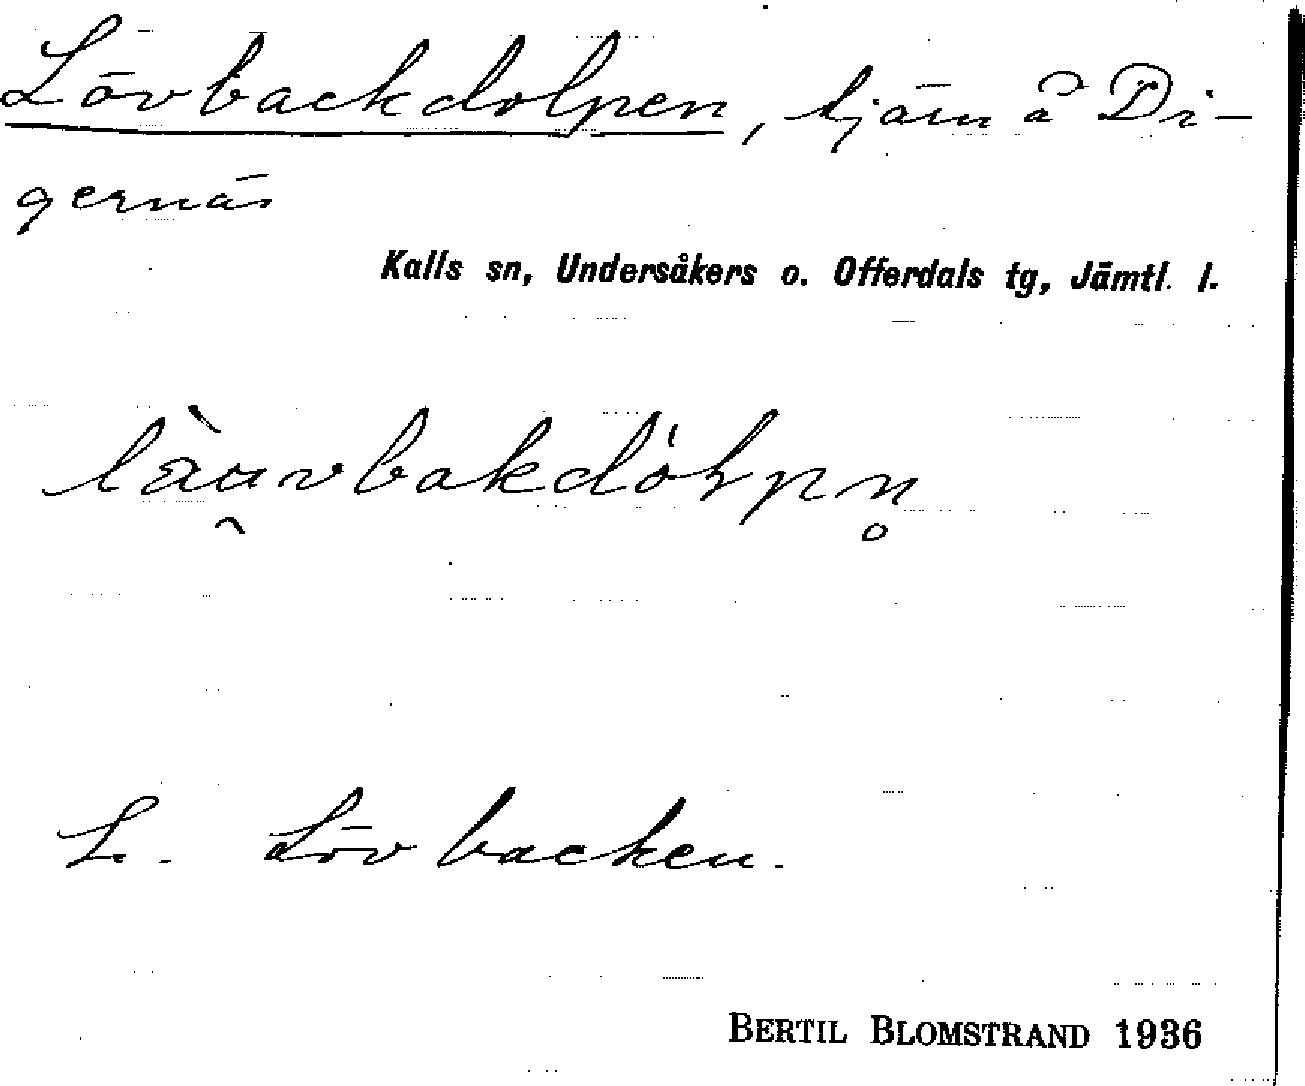 Lövbackdolpen, tjärn å Di-
gernäs
Kalls sn, Undersåkers o. Offerdals tg, Jämtl. l.
L. Lövbacken.
BERTIL BLOMSTRAND 1936